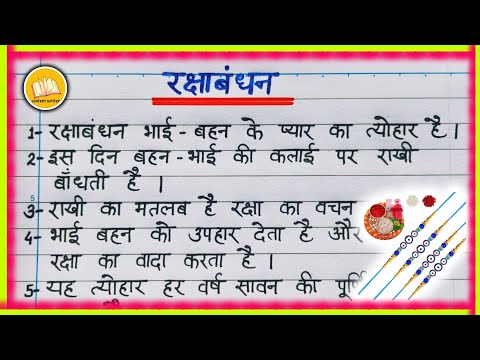 content writer
रक्षाबंधन
1- रक्षाबंधन भाई - बहन के प्यार का त्योहार है ।
2- इस दिन बहन - भाई की कलाई पर राखी
बाँधती है ।
3- राखी का मतलब है रक्षा का वचन
4- भाई बहन को उपहार देता है और
रक्षा का वादा करता है ।
5- यह त्योहार हर वर्ष सावन की